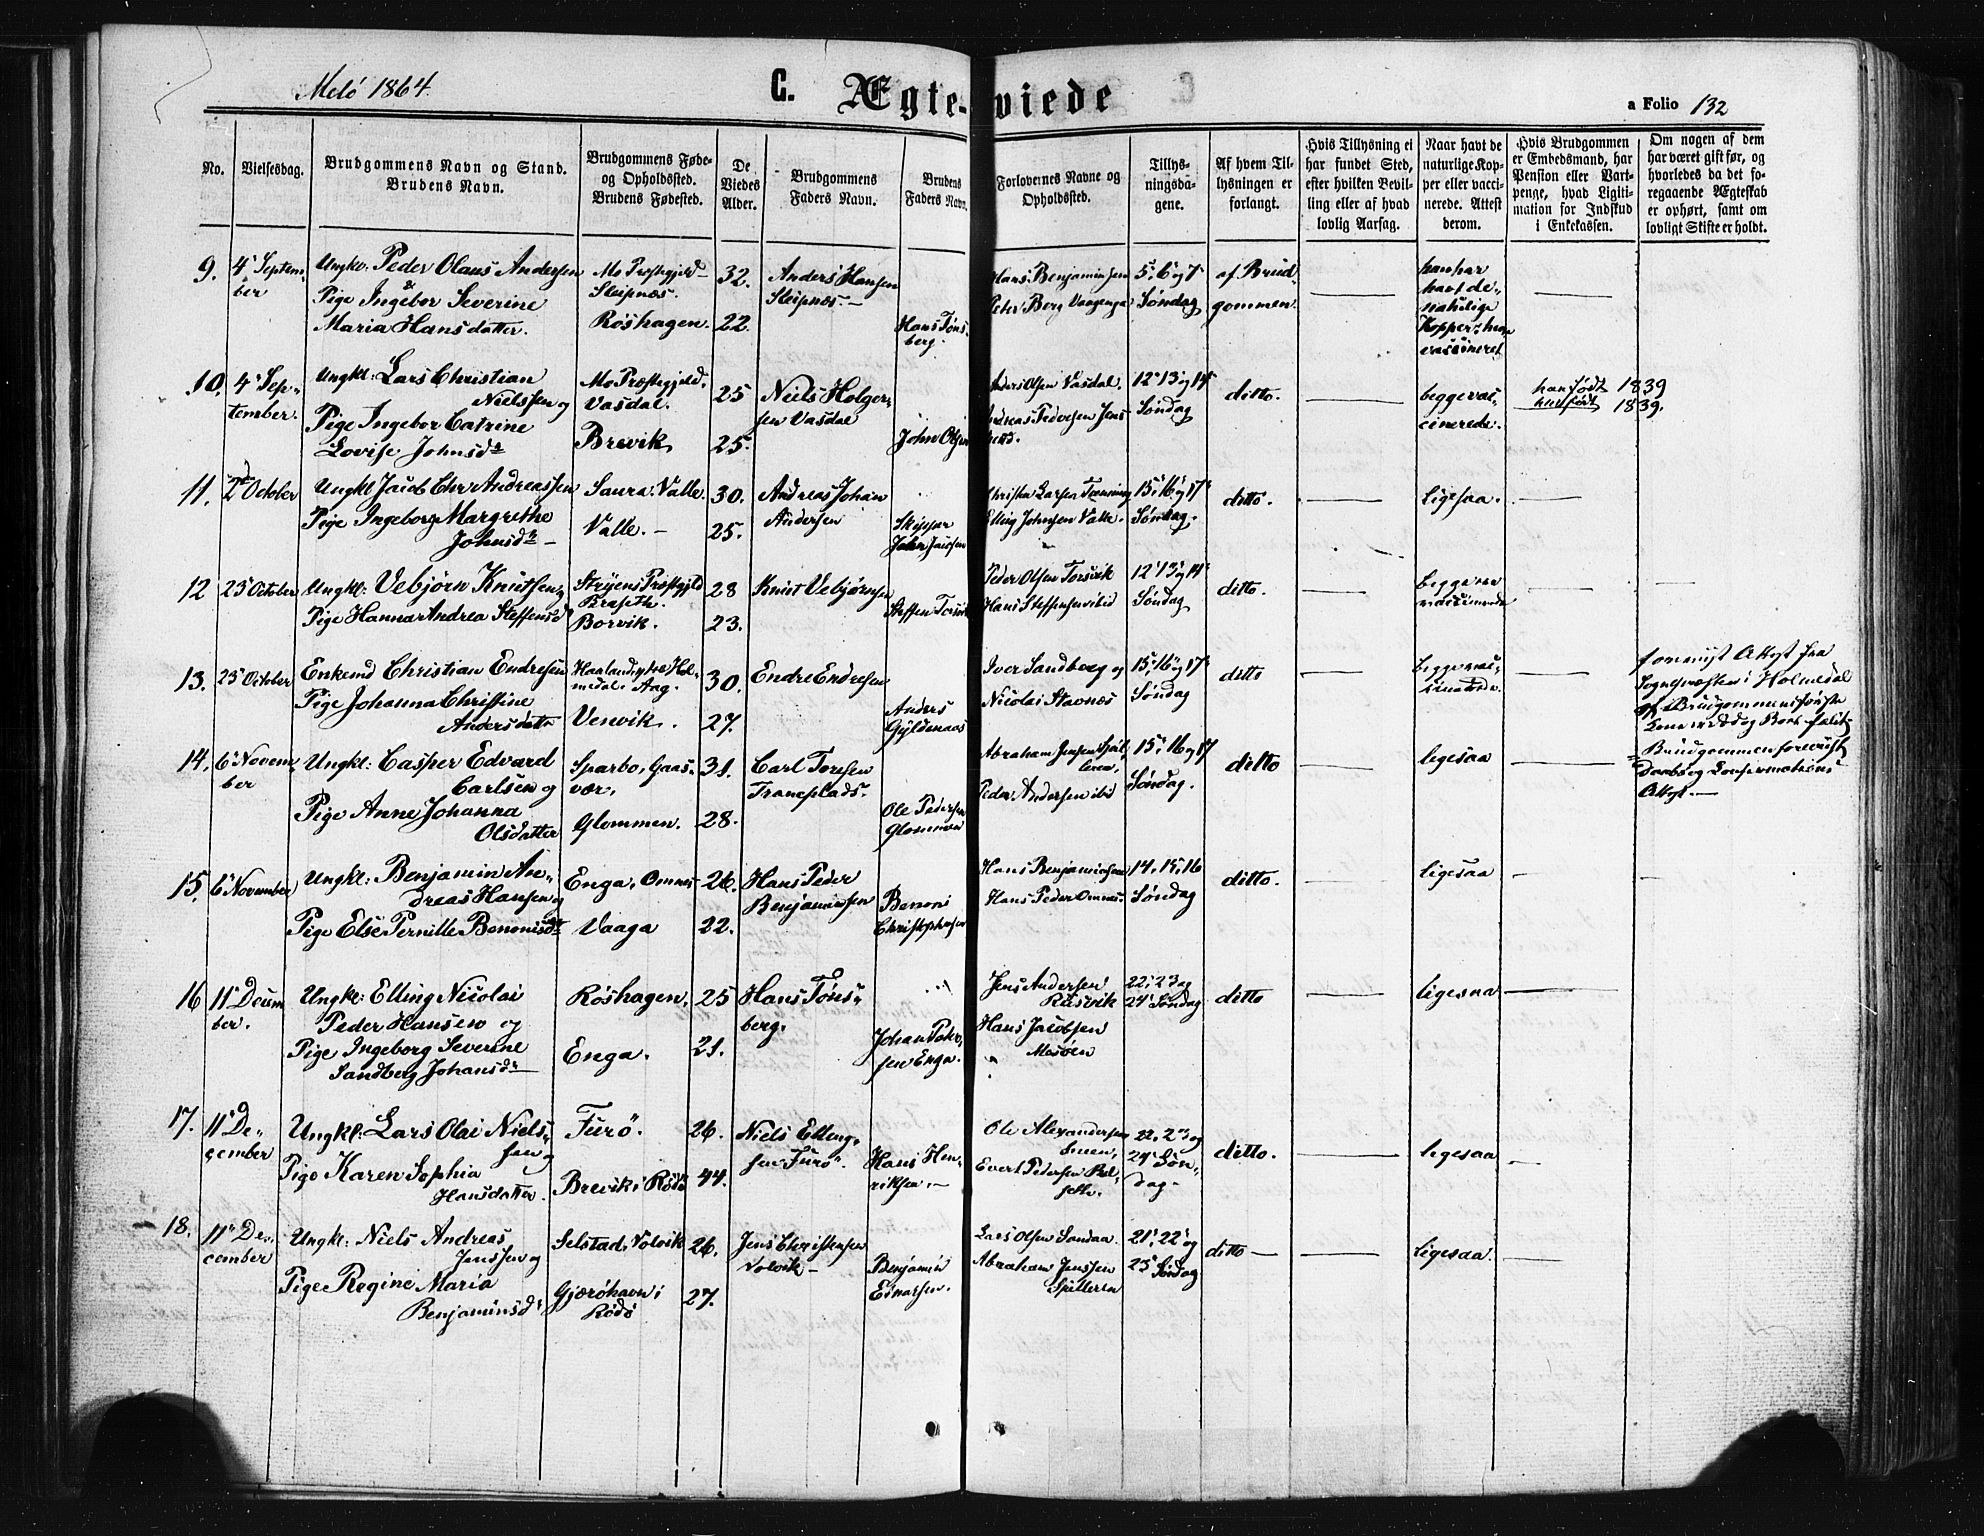 Melö 1864.
C. Ægteviede
a Folio 132
No.
Vielsesdag.
Brudgommens Navn og Stand.
Brudens Navn.
Brudgommens Føde-
og Opholdssted.
Brudens Fødested.
De
Viedes
Alder.
Brudgommens
Faders Navn.
Brudens
Faders Navn.
Forlovernes Navne og
Opholdssted.
Tillys-
ningsda-
gene.
Af hvem Til-
lysningen er
forlangt.
Hvis Tillysning ei
har fundet Sted,
efter hvilken Bevil-
ling eller af hvad
lovlig Aarsag.
Naar havt de
naturlige Kop-
per eller vacci-
nerede. Attest
derom.
Hvis Brudgommen
er Embedsmand, har
Pension eller Vart-
penge, hvad Ligiti-
mation for Indskud
i Enkekassen.
Om nogen af dem
har været gift før, og
hvorledes da det fo-
regaaende Ægteskab
er ophørt, samt om
lovligt Skifte er holdt.
9. 4 Septem-
ber
Ungkl. Peder Olaus Andersen
&
Pige Ingebor Severine
Maria Hansdatter.
Mo Præstegjeld
Sleipnæs.
Röshagen.
32.
22.
Anders Hansen
Sleipnæs.
Hans Töns-
berg.
Hans Benjaminsen
Peter Berg Vaagenga
5, 6 og 7
Söndag
af Brud-
gommen.
han har
havt de
naturlige
Kopper, hun
vaccineret
10. 4 Sep-
tember.
Ungkl: Lars Christian
Nielssen og
Pige Ingebor Catrine
Lovise Johnsd
Mo Præstegjeld.
Vasdal.
Brevik
25
25.
Niels Holger-
sen Vasdal
John Olsen
Anders Olsen Vasdal.
Andreas Pedersen Jens
12, 13 og 14
Söndag
ditto.
begge vac-
cinerede.
han födt 1839
hun födt 1839.
11. 2 October
Ungkl Jacob Chr Andreassen
Pige Ingeborg Margrethe
Johnsd
Saura. Valle.
Valle.
30.
25.
Andreas Johan
Andersen
Skipper
John Jacobsen
Christen Larsen
Elling Johnsen Valle.
15, 16 og 17
Söndag.
ditto.
ligesaa.
12 23 October
Ungkl: Vebjörn Knutsen
Pige Hanna Andrea Steffensd
Stryens Præstegjeld
Borvik.
28
23.
Knut Vebjörnsen
Steffen Torsvik
Peder Olsen Torsvik
Hans Steffensen ibid
12, 13 og 14
Söndag
ditto.
begge
vaccinerede
13. 23 October
Enkemd Christian Endresen
Pige Johanna Christine
Andersdatter
Aag.
Venvik.
30.
27.
Endre Endresen
Anders
Gyldenaas
Iver Sandberg og
Nicolai Stavnæs
15, 16 og 17
Söndag
ditto
begge vac-
cinerede.
forevist Attest fra
Sognepræsten i Holmedal
14. 6 Novem-
ber
Ungkl: Casper Edvard
Carlsen og
Pige Anne Johanna
Olsdatter
Sparbo, Gaas-
vær.
Glommen.
31.
28.
Carl Toresen
Traneplads.
Ole Pedersen
Glommen
Abraham Jensen
Peder Andersen ibid
15, 16 og 17
Söndag.
ditto
ligesaa
Brudgommen forevist
Daabs og Confirmations
Attest.
15. 6 November
Ungkl: Benjamin An-
dreas Hansen og
Pige Else Pernille Benonisd
Enga, Ornnes
Vaaga
26.
22.
Hans Peder
Benjaminsen
Benoni
Christophersen
Hans Benjaminsen
Hans Peder Ornnes
14, 15, 16
Söndag
ditto.
ligesaa
16 11 Decem
ber.
Ungkl: Elling Nicolai
Peder Hansen og
Pige Ingeborg Severine
Sandberg Johansd
Röshagen.
Enga.
25
21.
Hans Töns-
berg.
Johan Peter-
sen Enga.
Jens Andersen
Risvik
Hans Jacobsen
Mesöen
22, 23 og
24 Söndag
ditto
ligesaa
17. 11 De-
cember
Ungkl: Lars Olai Niels-
sen og
Pige Karen Sophia
Hansdatter.
Furö.
Brevik i Rödö
26.
44.
Niels Elling-
sen Furö.
Hans Hen-
riksen.
Ole Alexandersen
Evert Pedersen
22, 23 og
24 Sön-
dag.
ditto.
ligesaa
18. 11 De-
cember
Ungkl: Niels Andreas
Jenssen og
Pige Regine Maria
Benjaminsd
Selstad, Volvik
Gjeröhavn i
Rödö
26.
27.
Jens Christensen
Volvik
Benjamin
Einarsen.
Lars Olsen Sandaa.
Abraham Jenssen
Spilleren
21, 22 og
23 Söndag
ditto
ligesaa